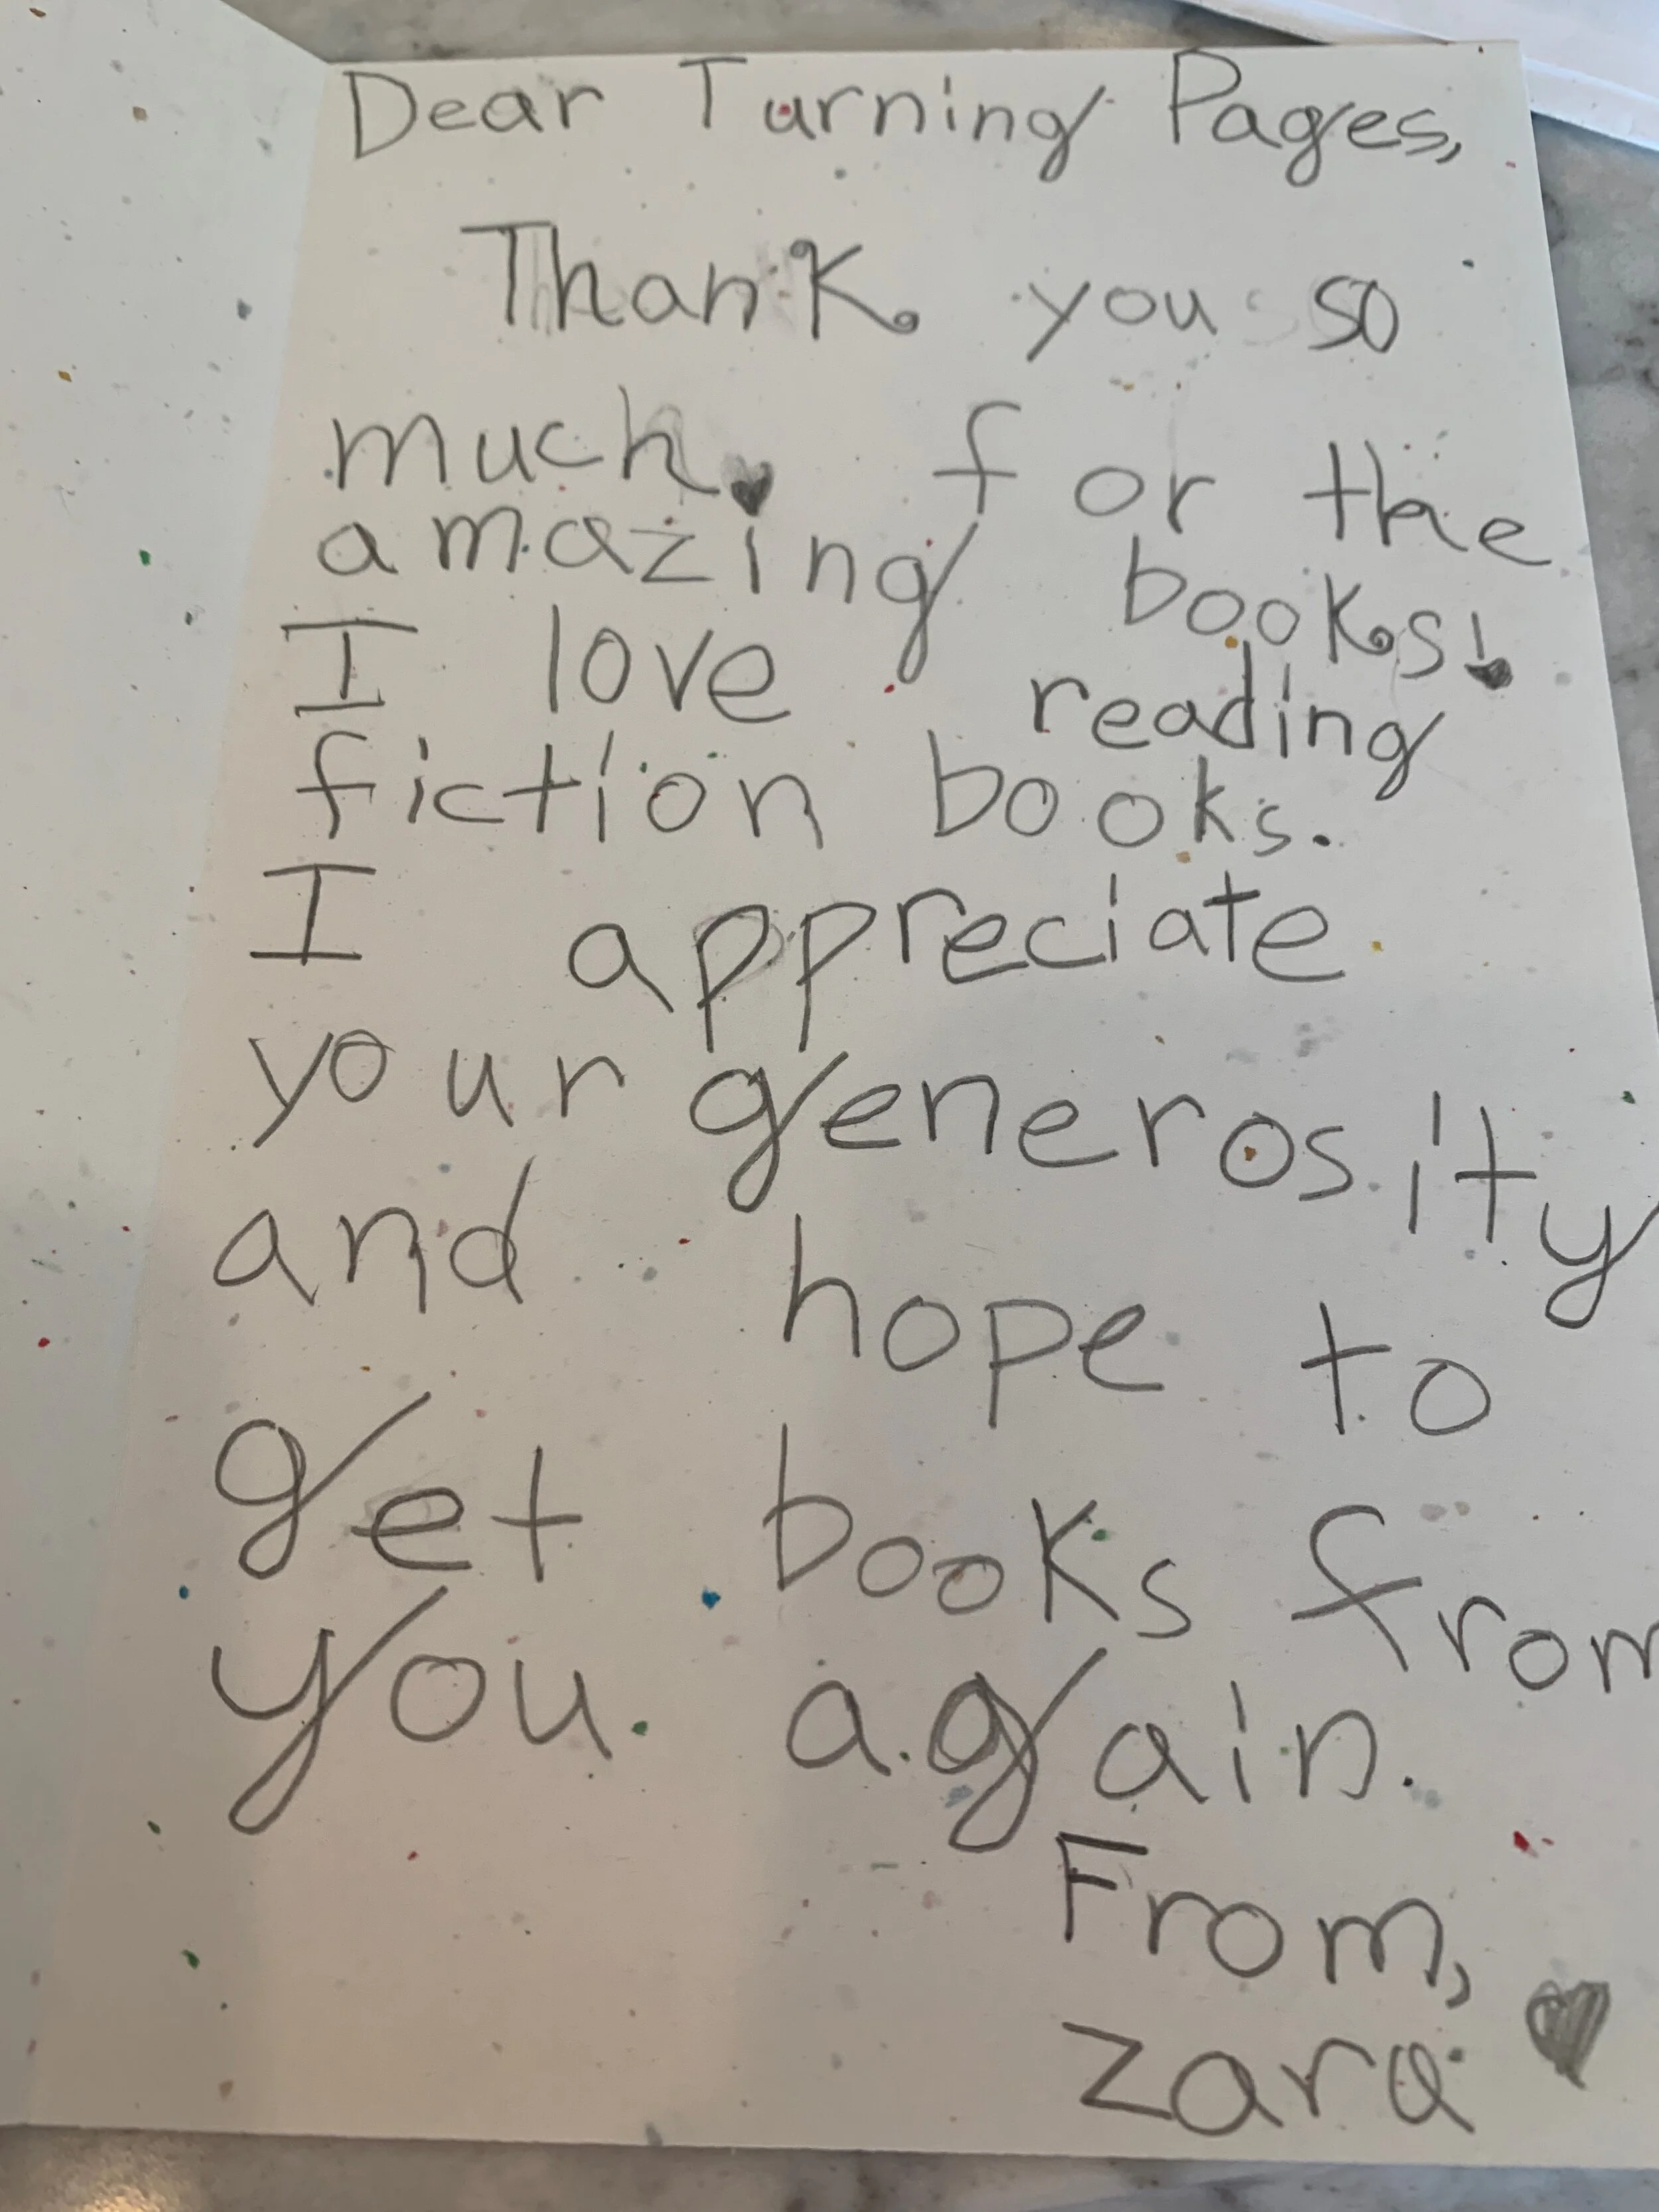 Dear Turning Pages,
Thank you so
much for the
amazing books!
I love reading
fiction books.
I appreciate
your generosity
and hope to
get books from
you again.
From,
Zara